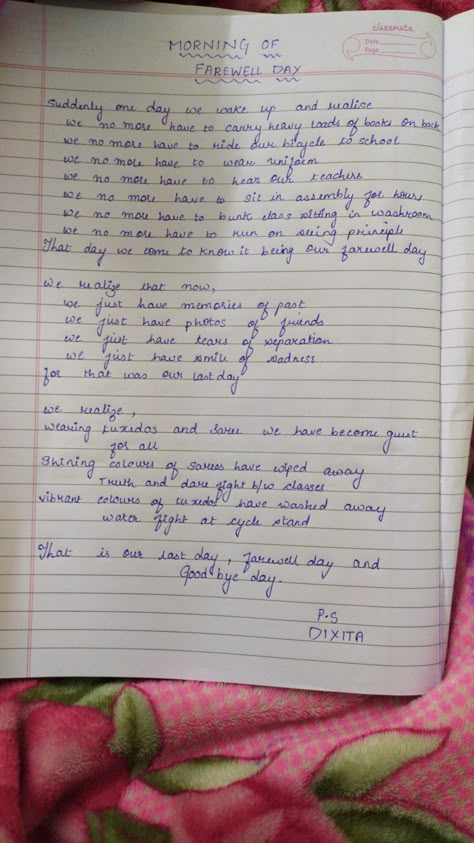 classmate
Date
Page
MORNING OF
FAREWELL DAY
Suddenly one day we wake up and realise
we no more have to carry heavy loads of books on back
we no more have to ride our bicycle to school
we no more have to wear uniform
we no more have to hear our teachers
we no more have to sit in assembly for hours
we no more have to bunk class sitting in washroom
we no more have to run on seeing principle
That day we come to know it being our farewell day
we realize that now,
we just have memories of past
we just have photos of friends
we just have tears of separation
we just have smile of sadness.
for that was our last day
we realize,
wearing tuxedos and saree we have become guest
for all
Shining colours of sarees have wiped away
Truth and dare fight b/w classes
vibrant colours of tuxedos have washed away
water fight at cycle stand
That is our last day, farewell day and
Good bye day.
P.S
DIXITA